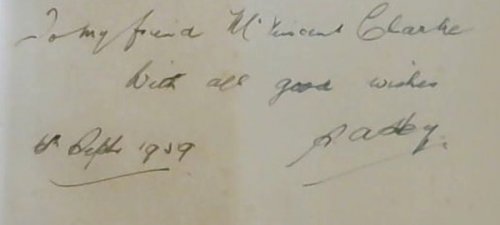 To my friend Mr Vincent Clarke
With all good wishes
Sept 1939